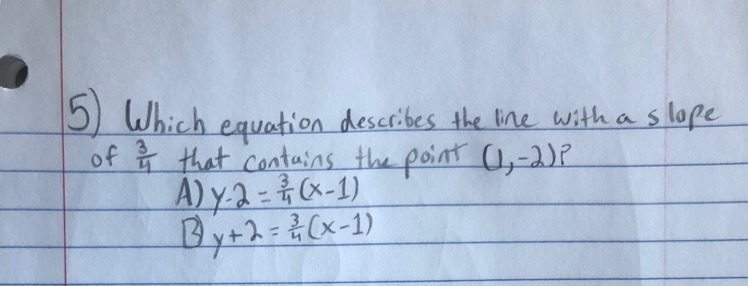 5) Which equation describes the line with a slope
of 3/4 that contains the point (1,-2)?
A) y-2 = 3/4 (x-1)
B) y+2 = 3/4 (x-1)